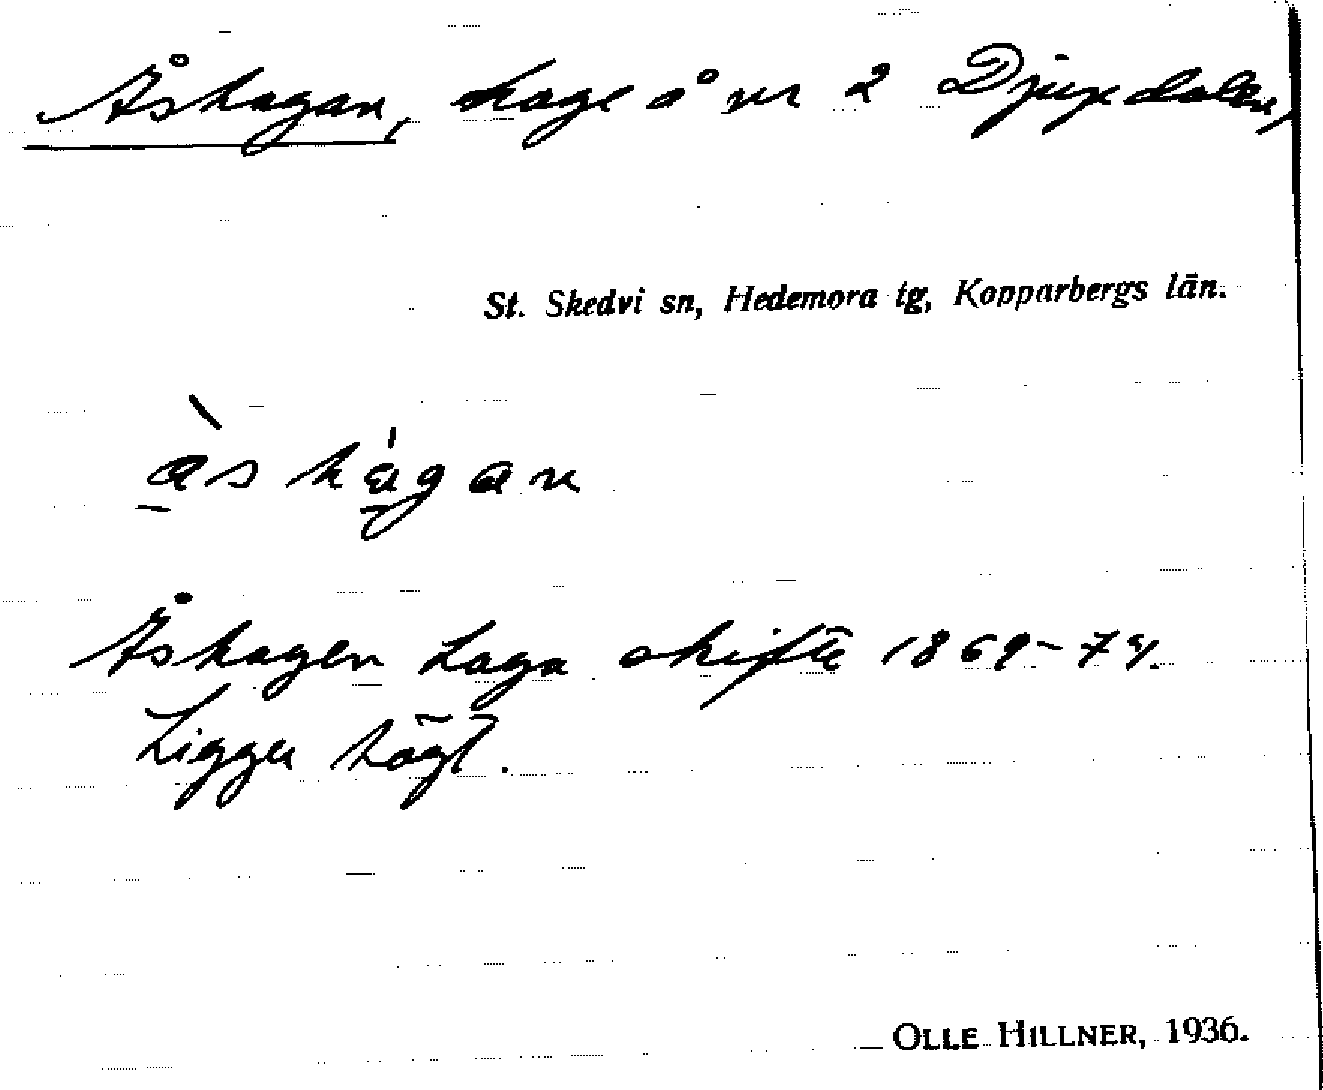 Åshagan, hage å nr 2 Djupdalen,
St. Skedvi sn, Hedemora tg, Kopparbergs län.
å̠̀s ha̠̍gan
Åshagen Laga skifte 1869-74.
Ligger högt.
OLLE HILLNER, 1936.